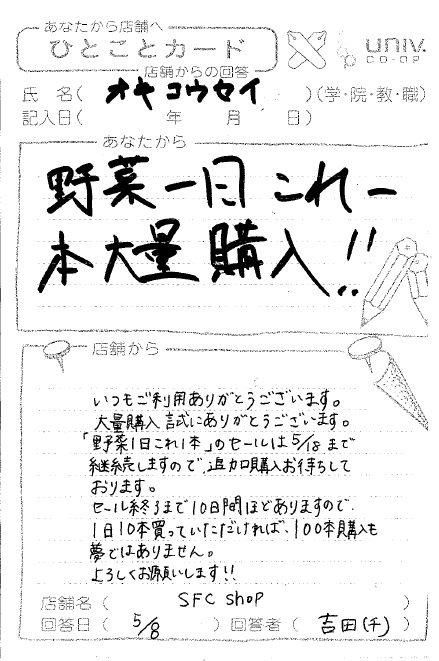 あなたから店舗へ
ひとことカード
店舗からの回答
univ.
CO-OP
氏 名( オキ コウセイ )(学・院・教・職)
記入日( 年 月 日)
あなたから
野菜一日これ一
本大量購入!!
店舗から
いつもご利用ありがとうございます。
大量購入 誠にありがとうございます。
「野菜1日これ1本」のセールは5/18まで
継続しますので、追加購入お待ちして
おります。
セール終了まで10日間ほどありますので、
1日10本買っていただければ、100本購入も
夢ではありません。
よろしくお願いします!!
店舗名( SFC shop )
回答日( 5/8 )回答者( 吉田(千) )